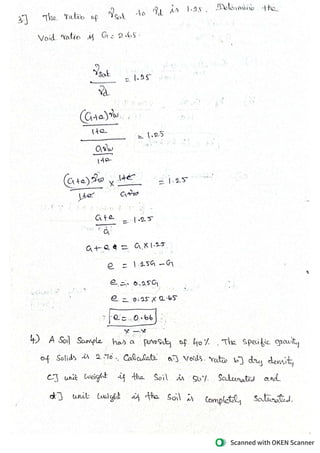 3] The ratio of γsat to γd is 1.25. Determine the
Void ratio if G = 2.65.
γsat / γd = 1.25
(G+e)γw / 1+e / Gγw / 1+e = 1.25
(G+e)γw / 1+e × 1+e / Gγw = 1.25
G+e / G = 1.25
G+e = G × 1.25
e = 1.25G - G
e = 0.25G
e = 0.25 × 2.65
e = 0.66
x — x
4) A Soil Sample has a porosity of 40%. The Specific gravity
of Solids is 2.70. Calculate a] Voids ratio b] dry density
c] unit weight if the Soil is 50% Saturated and
d] unit weight if the Soil is Completely Saturated.
Scanned with OKEN Scanner